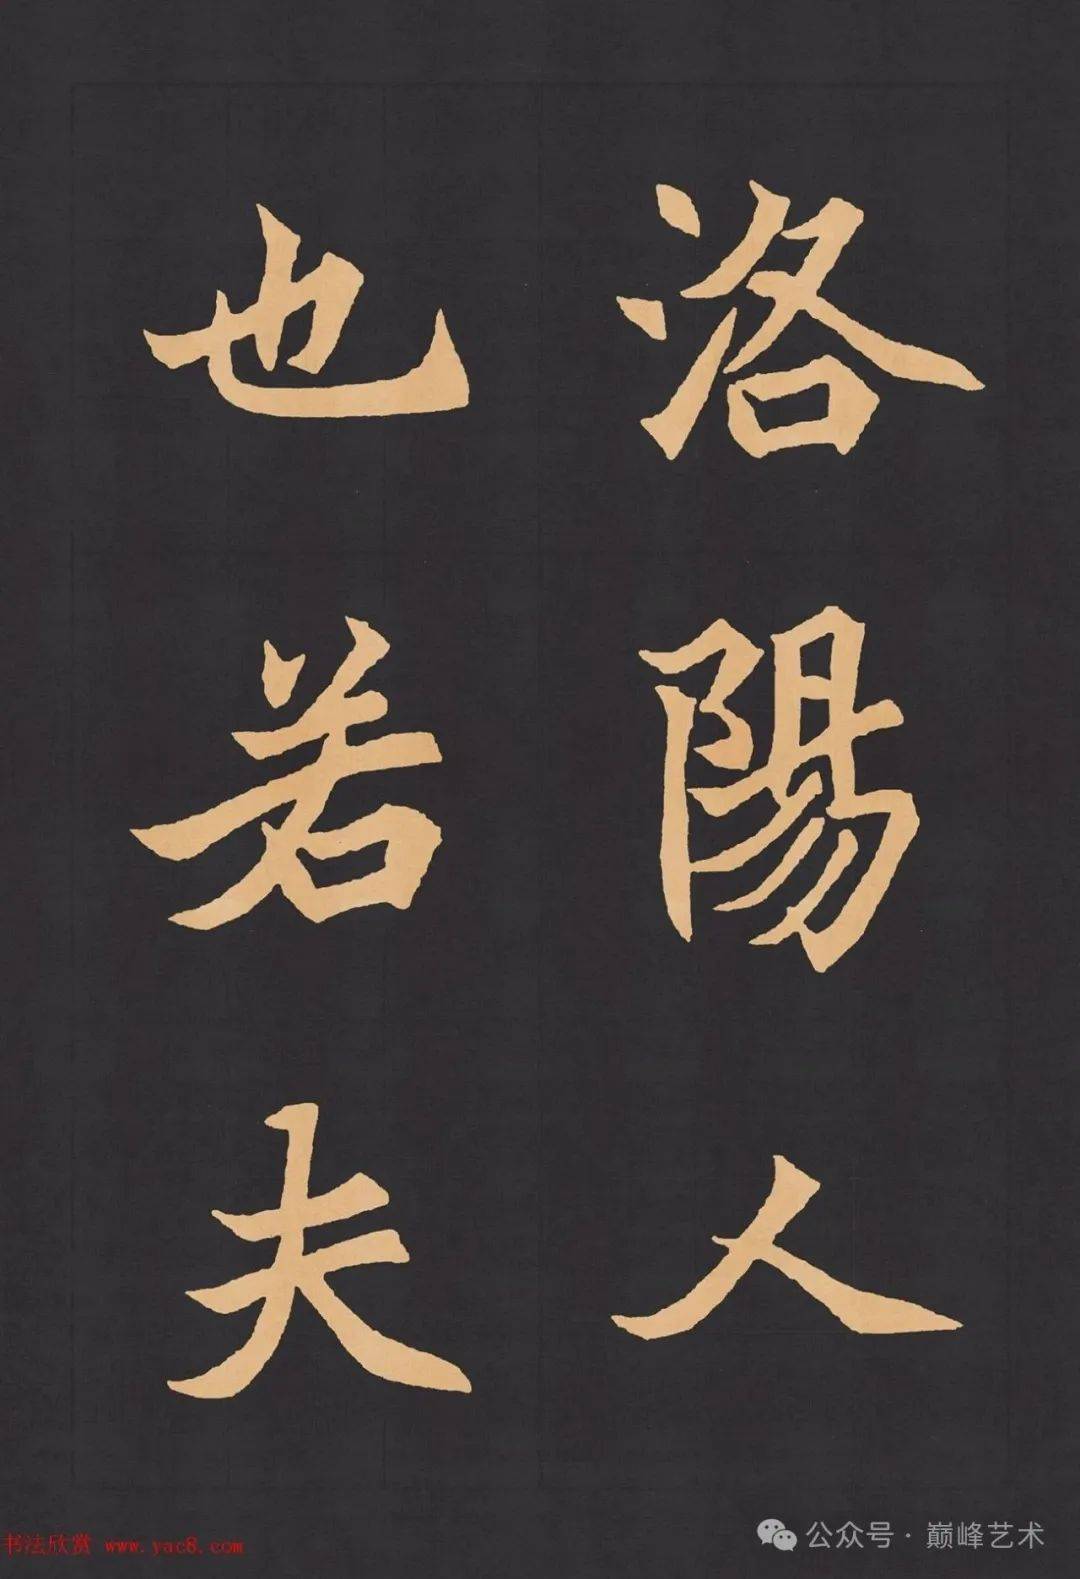 洛陽人
也若夫
书法欣赏 www.yac8.com
公众号·巅峰艺术